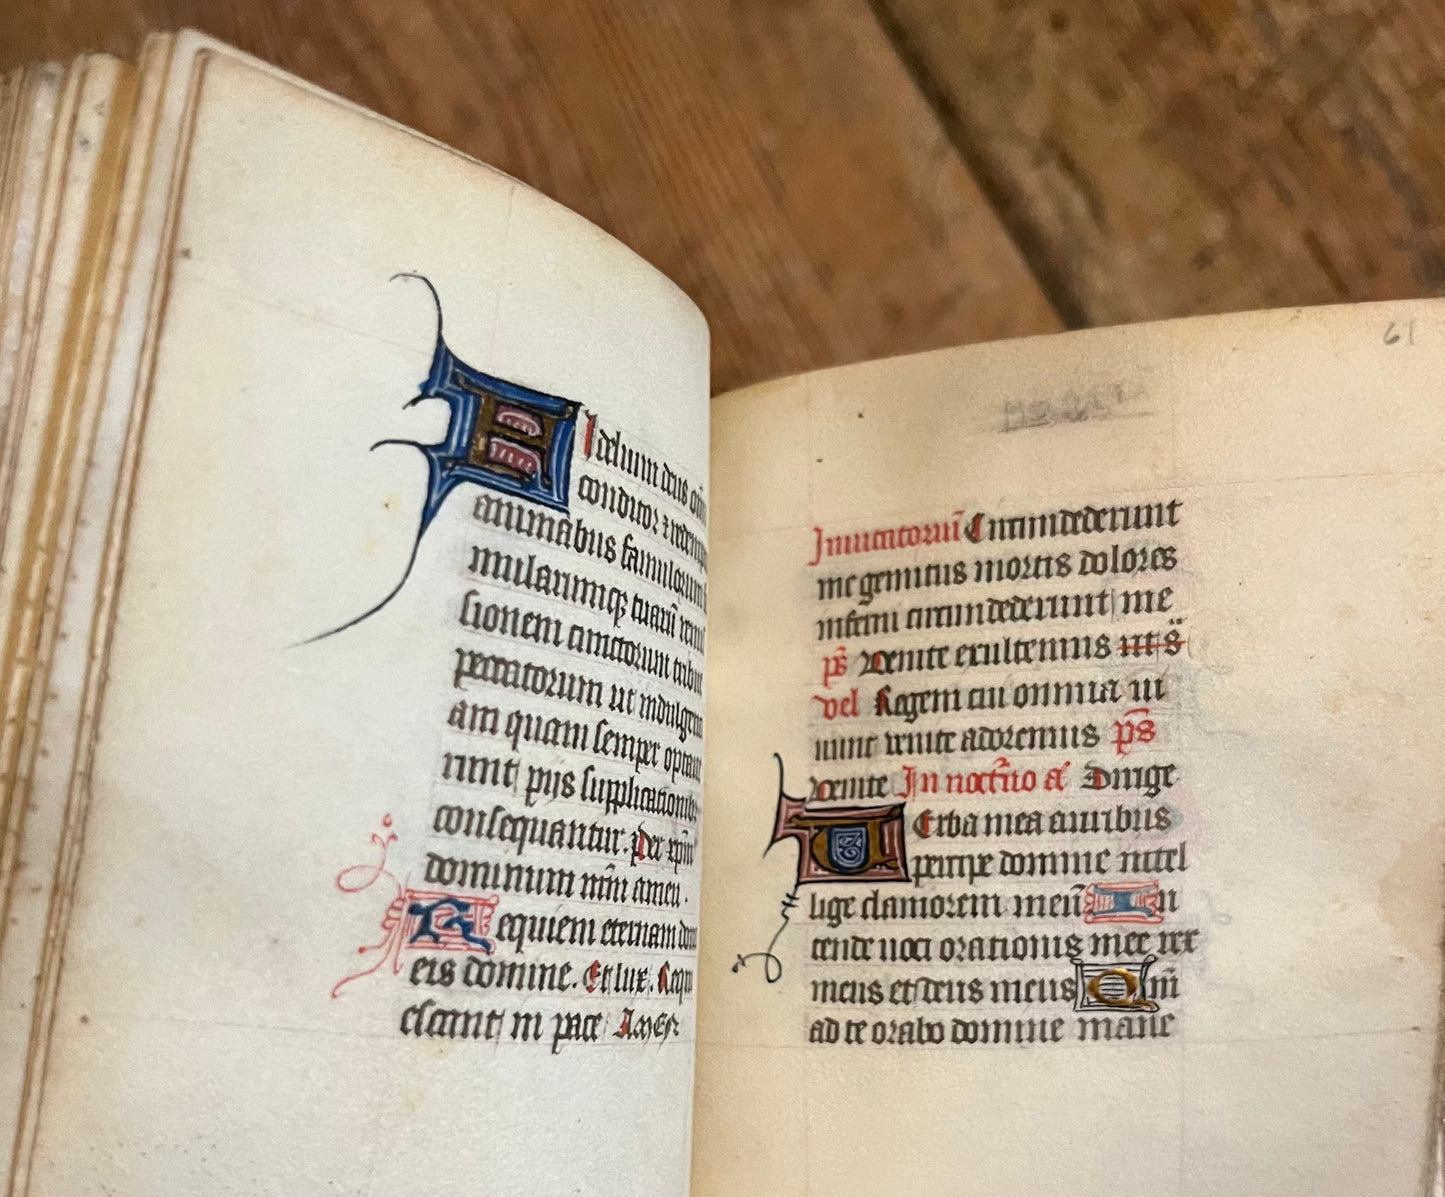 FIdelium deus om̄
conditor ⁊ redemp
animabus famulorum
mularumqꝫ tuarū remi
sionem cunctorum tribu
peccatorum ut indulgen
am quam semper optaue
runt pijs supplicationib
consequantur. Per xp̄m
dominum nr̄m amen.
Requiem eternam dona
eis domine. Et lux. Requi
escant in pace Amen
61
Inuitatoriū Circumdederunt
me gemitus mortis dolores
inferni circumdederunt me
p̄s Venite exultemus
vel Regem cui omnia ui
uunt venite adoremus p̄s
Venite In noct̄no a Dirige
Verba mea auribus
percipe domine intel
lige clamorem meū In
tende uoci orationis mee rex
meus et deus meus Qm̄
ad te orabo domine mane